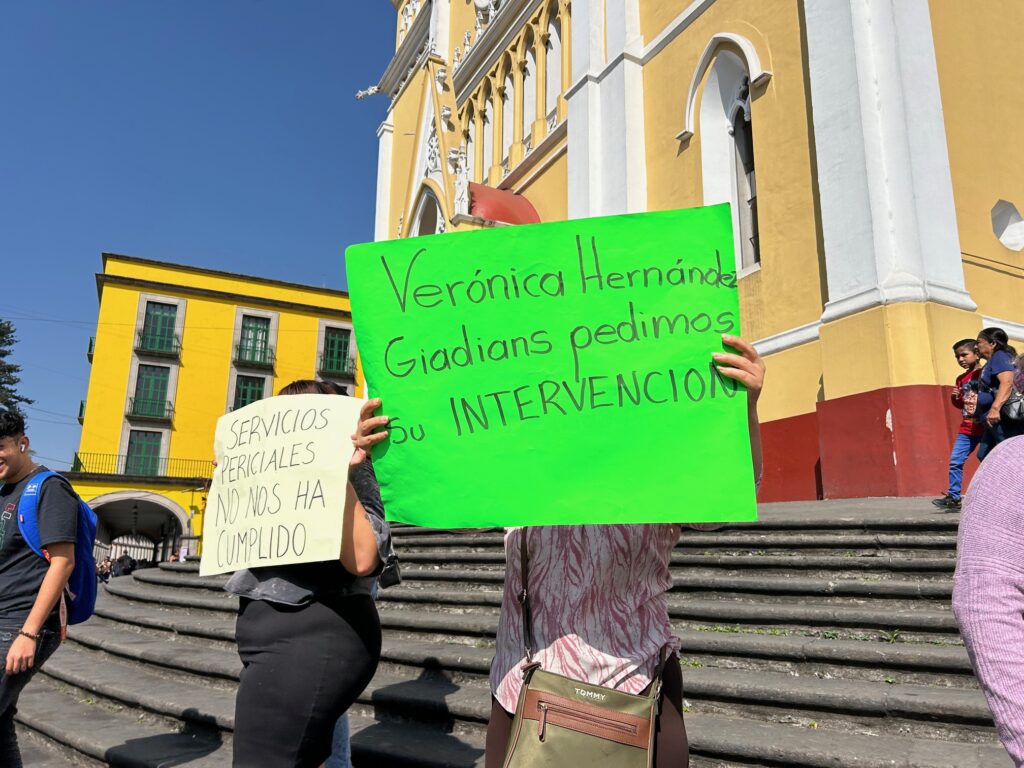 Verónica Hernández
Giadians pedimos
Su INTERVENCION
SERVICIOS
PERICIALES
NO NOS HA
CUMPLIDO
TOMMY